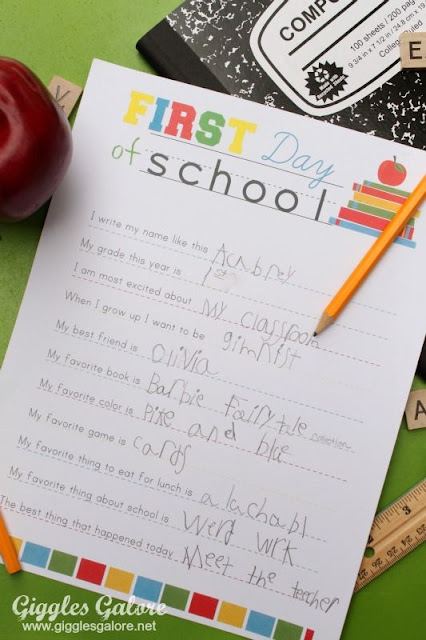 COMPO
100 sheets / 200 pag
9 3/4 in x 7 1/2 in / 24.8 cm x 19
College Ruled
E
FIRST Day
of school
I write my name like this Aubrey
My grade this year is 1st
I am most excited about My classroom
When I grow up I want to be gimnist
My best friend is Olivia
My favorite book is Barbie Fairy tale collection
My favorite color is Pike and blue
My favorite game is cards
My favorite thing to eat for lunch is a lachabl
My favorite thing about school is Werd wrk
The best thing that happened today Meet the teacher
A
Giggles Galore
www.gigglesgalore.net